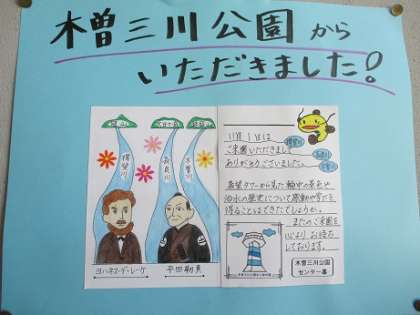 木曽三川公園から
いただきました!
揖斐川
長良川
木曽川
ヨハネス・デ・レーケ
平田靱負
11月1日は
ご来園いただきまして
ありがとうございました。
展望タワーから見た輪中の景色や
治水の歴史について感動や学びを
得ることはできたでしょうか。
またのご来園を
心よりお待ち
しております。
木曽三川公園
センター